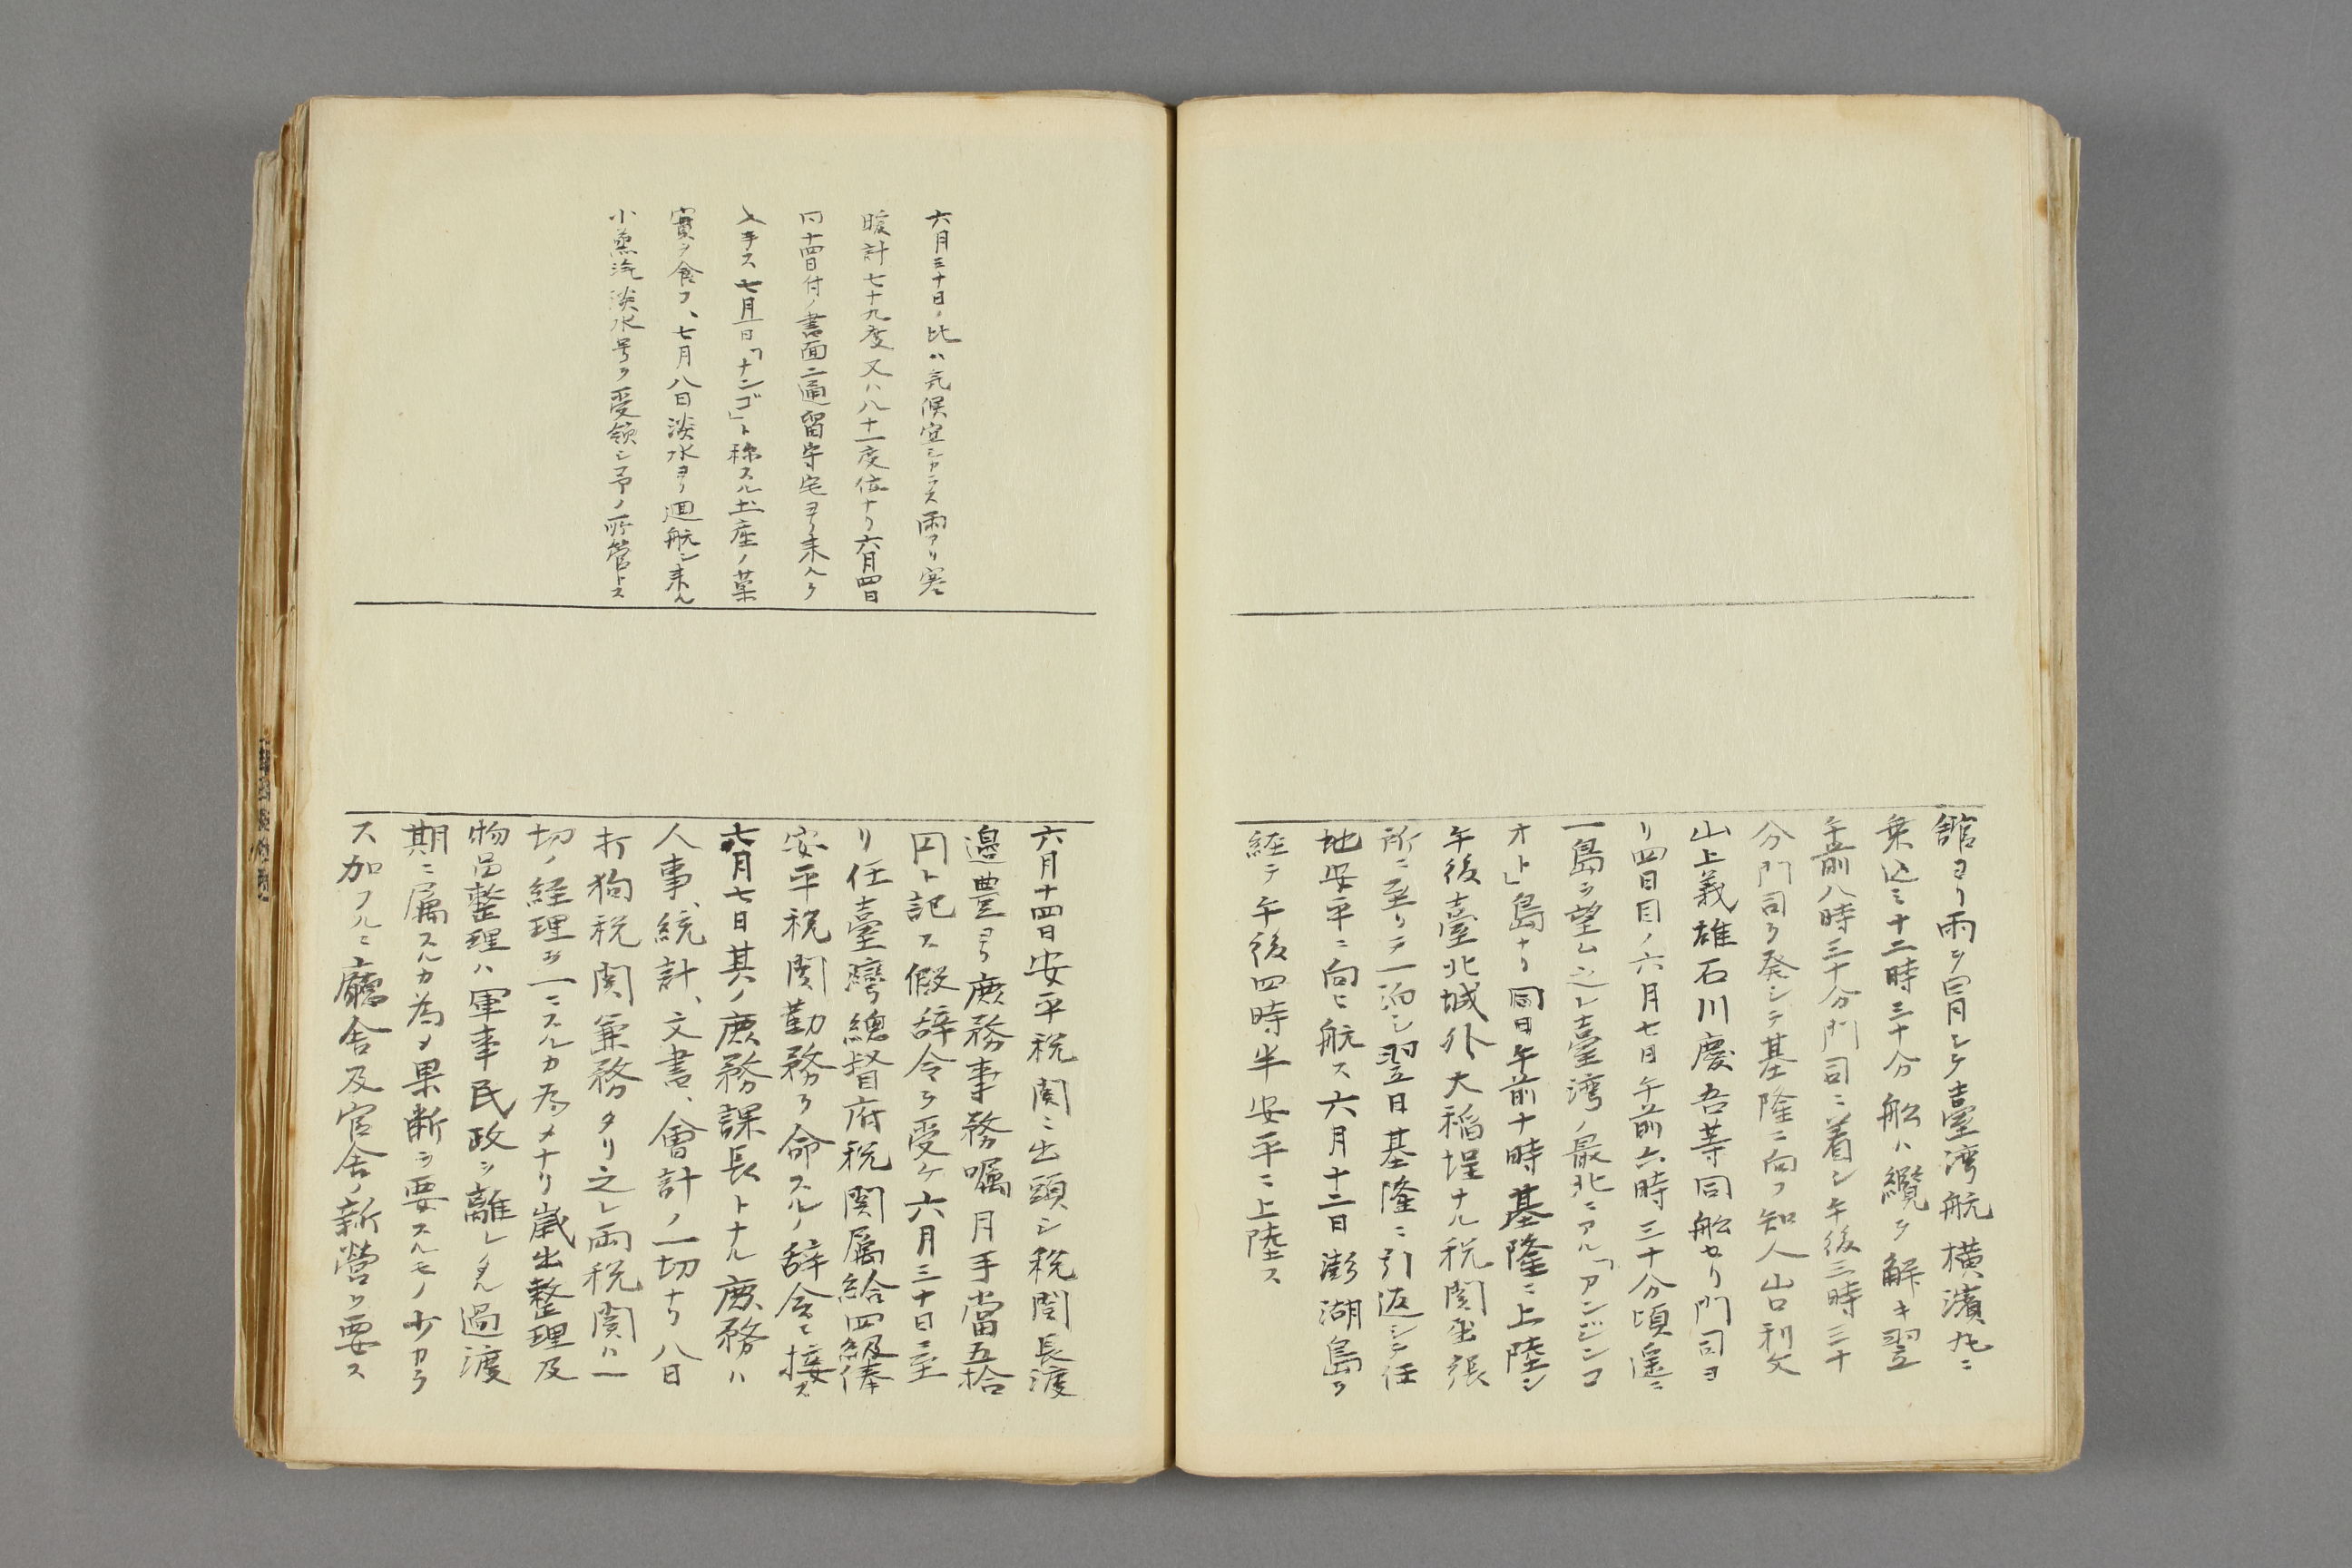 舘ヨリ雨ヲ冒シテ臺湾航横濱丸ニ
乗込ミ十二時三十分舩ハ纜ヲ解キ翌
午前八時三十分門司ニ着シ午後三時三十
分門司ヲ発シテ基隆ニ向フ知人山口利父
山上義雄石川慶吾等同舩セリ門司ヨ
リ四日目ノ六月七日午前六時三十分頃遙ニ
一島ヲ望ム之レ臺湾ノ最北ニアル「アンジンコ
オト」島ナリ同日午前十時基隆ニ上陸シ
午後臺北城外大稲埕ナル税関出張
所ニ至リテ一泊シ翌日基隆ニ引返シテ任
地安平ニ向ヒ航ス六月十二日澎湖島ヲ
経テ午後四時半安平ニ上陸ス
六月三十日ノ比ハ気候宜シカラス雨アリ寒
暖計七十九度又ハ八十一度位ナリ六月四日
同十四日付ノ書面二通留守宅ヨリ来ヘリ
入手ス七月一日「ナンゴ」ト称スル土産ノ菓
實ヲ食フ、七月八日淡水ヨリ廻航シ来ル
小蒸汽淡水号ヲ受領シ予ノ所管トス
六月十四日安平税関ニ出頭シ税関長渡
邉豊ヨリ庶務事務嘱月手當五拾
円ト記ス假辞令ヲ受ケ六月三十日ニ至
リ任臺灣總督府税関属給四級俸
安平税関勤務ヲ命スルノ辞令ニ接ス
六月七日其ノ庶務課長トナル庶務ハ
人事、統計、文書、會計ノ一切ナリ八日
打狗税関兼務タリ之レ両税関ハ一
切ノ経理ヲ一ニスルカ為メナリ歳出整理及
物品整理ハ軍事民政ヲ離レタル過渡
期ニ属スルカ為メ果断ヲ要スルモノ少カラ
ス加フルニ廳舎及官舎ノ新営ヲ要ス